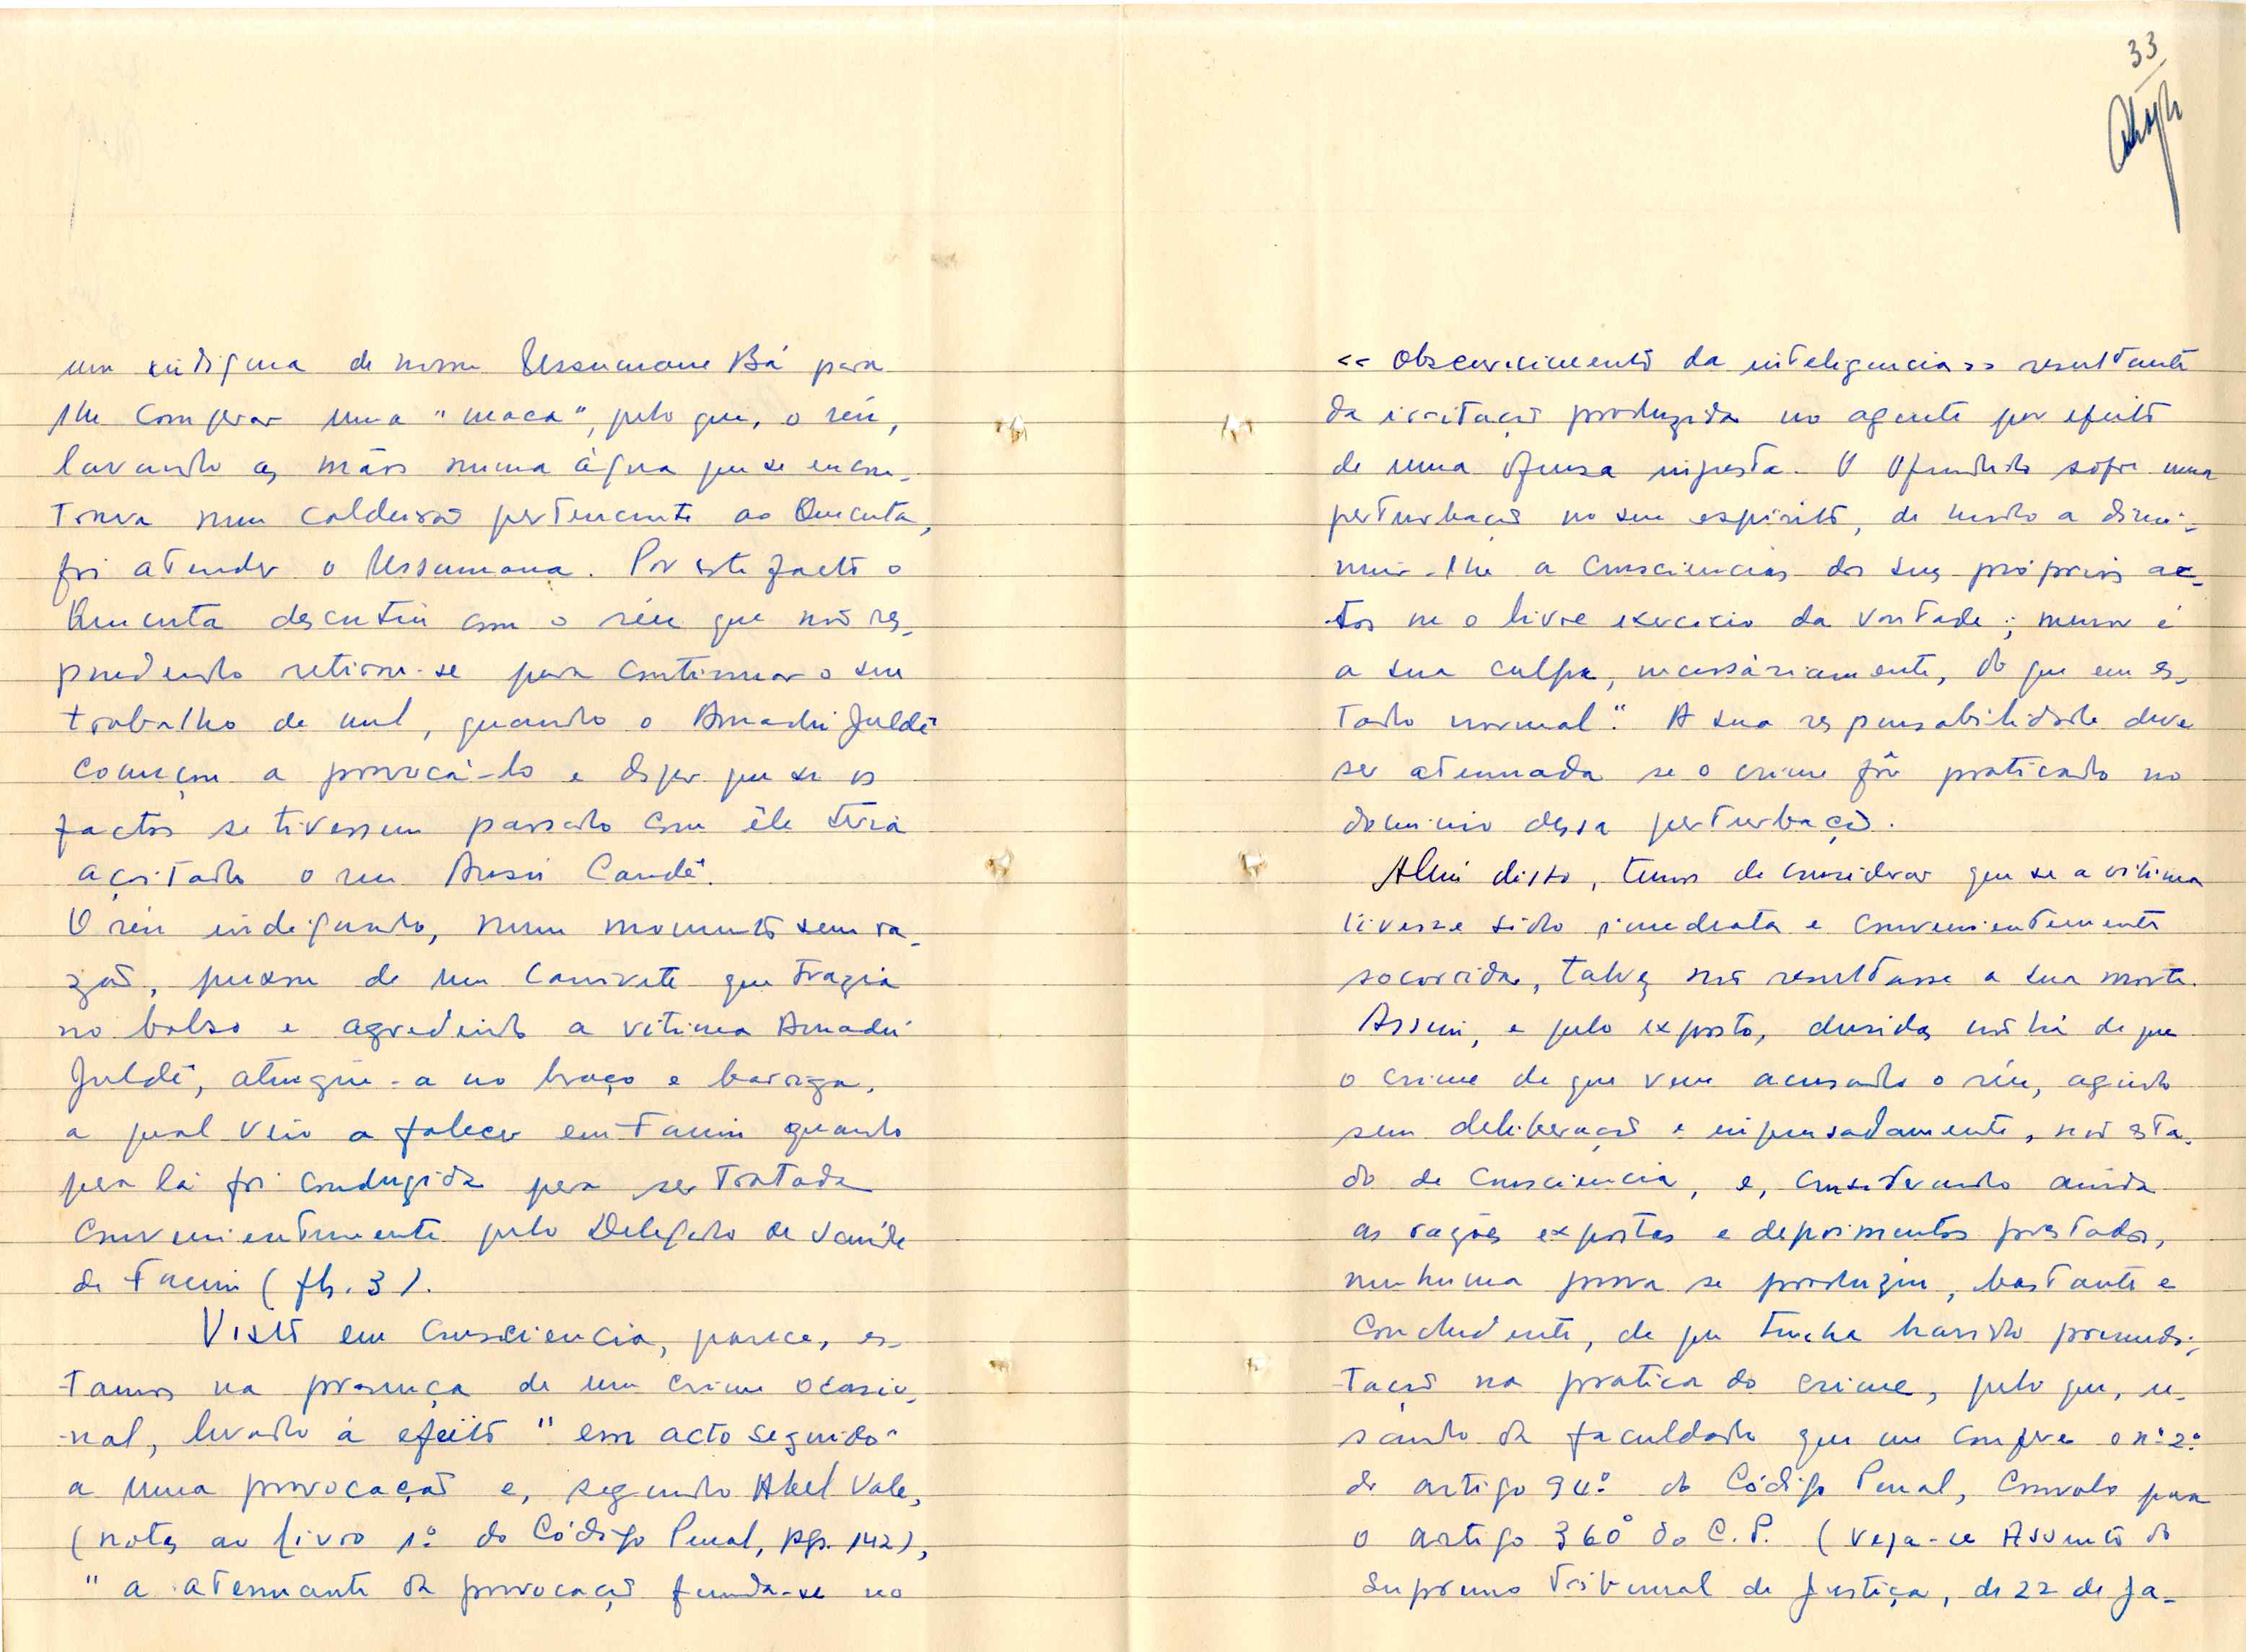 um indigena de nome Ussumane Bá para
lhe comprar uma "maca", pelo que, o réu,
lavando as mãos numa água que se encon-
trava num caldeirão pertencente ao Quecuta,
foi atender o Ussumana. Por este facto o
Quecuta descutiu com o réu que não res-
pondendo retirou-se para continuar o seu
trabalho de mel, quando o Amadú Juldé
começou a provocá-lo e dizer que se os
factos se tivessem passado com êle teria
açoitado o reu Ansú Candé.
O réu indignando, num momento sem ra-
zão, puxou de um canivete que trazia
no bolso e agredindo a vitima Amadú
Juldé, atingiu-a no braço e barriga,
a qual veio a falecer em Farim quando
para lá foi conduzida para ser tratada
convenientemente pelo Delegado de Saúde
de Farim (fls. 3).
Visto em consciencia, parece, es-
tamos na presença de um crime ocasio-
nal, levado á efeito "em acto seguido"
a uma provocação e, segundo Abel Vale,
(notas ao livro 1º do Código Penal, pgs. 142),
"a atenuante da provocação funda-se no
33
<< obscurecimento da inteligencia>> resultante
da irritação produzida no agente por efeito
de uma ofensa injusta. O ofendido sofre uma
perturbação no seu espirito, de modo a dimi-
nuir-lhe a consciencias dos seus próprios ac-
tos ne o livre exercicio da vontade; menor é
a sua culpa, necessáriamente, do que em es-
tado normal". A sua responsabilidade deve
ser atenuada se o crime fôr praticado no
dominio dessa perturbação.
Além disto, temos de considerar que se a vitima
tivesse sido imediata e convenientemente
socorrida, talvez não resultasse a sua morte.
Assim, e pelo exposto, duvidas não há de que
o crime de que vem acusado o réu, agindo
sem deliberação e impensadamente, no esta-
do de consciencia, e, considerando ainda
as razões expostas e depoimentos prestados,
nenhuma prova se produziu, bastante e
concludente, de que tenha havido premedi-
tação na pratica do crime, pelo que, u-
sando da faculdade que me confere o nº 2º
do artigo 94º do Código Penal, convolo para
o artigo 360º do C.P. (veja-se Assento do
Supremo Tribunal de Justiça, de 22 de Ja-